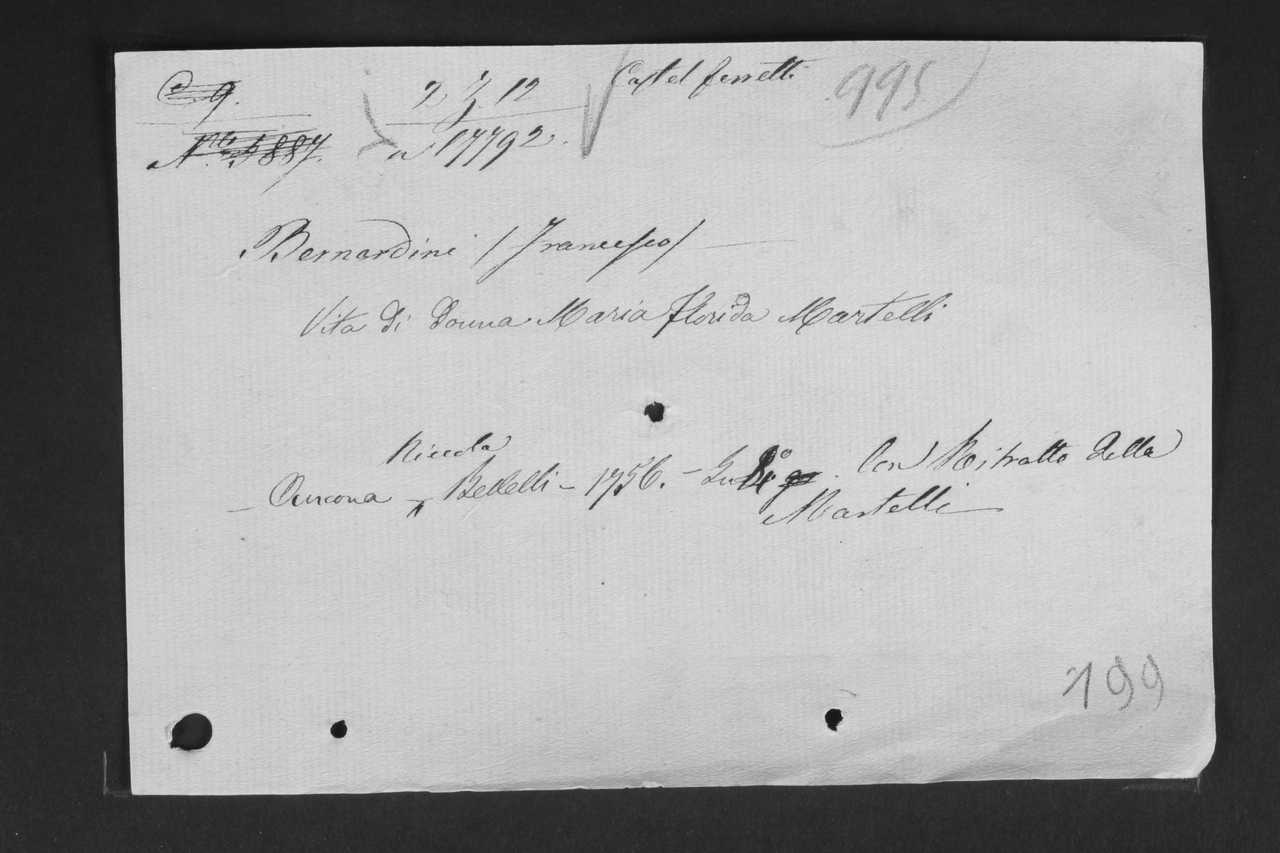 C. 9. 2 J 12 Castelferretti 995
N.º 5887. a 17792.
Bernardini (Francesco)
Vita di donna Maria Florida Martelli
Niccola
Ancona Bellelli - 1756. - in 8º Con Ritratto della
Martelli
199